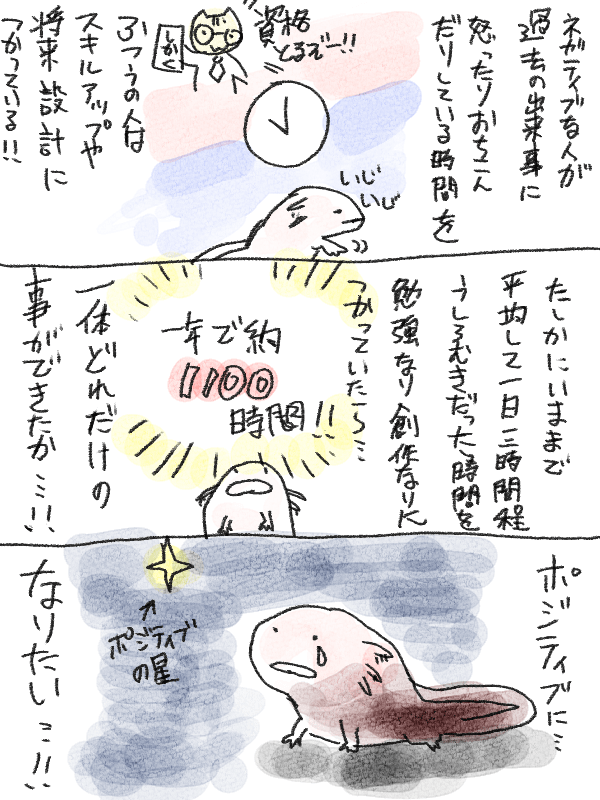 ネガティブな人が
過去の出来事に
怒ったりおちこん
だりしている時間を
資格
とるぞー!!
しかく
いじ
いじ
ふつうの人は
スキルアップや
将来設計に
つかっている!!
たしかにいままで
平均して一日三時間程
うしろむきだった時間を
勉強なり創作なりに
つかっていたら…
一年で約
1100
時間!!
一体どれだけの
事ができたか…!!
ポジティブに…
↑
ポジティブ
の星
なりたい…!!